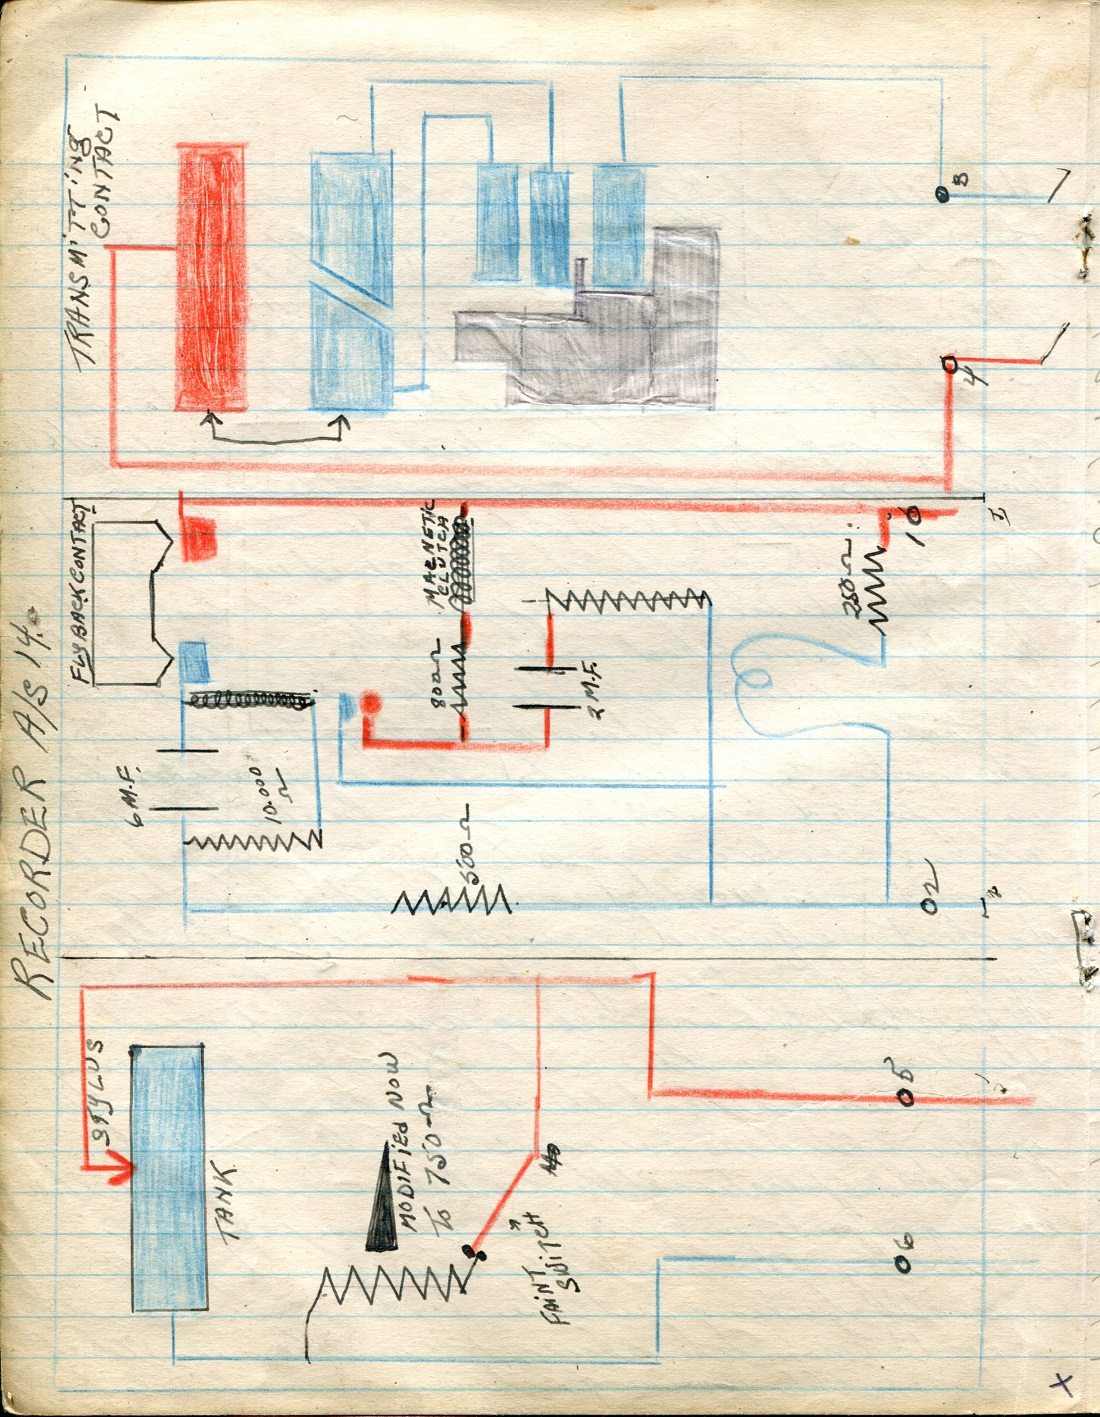 RECORDER A/S 14.
TRANSMITTING
CONTACT
3
4
FLYBACK CONTACT
MAGNETIC
CLUTCH
800Ω
2 M.F.
6 M.F.
10.000
Ω
500Ω
250Ω
10
02
STYLUS
TANK
MODIFIED NOW
TO 750Ω
"FAINT
SWITCH"
05
06
X